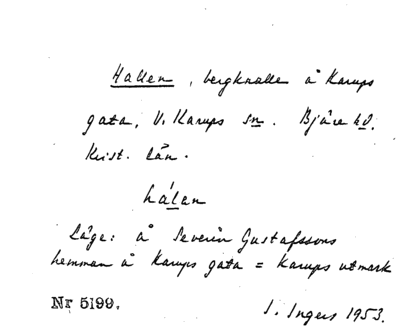 Hallen, bergknalle å Karups
gata, V. Karups sn. Bjäre hd.
Krist. län.
hálan
Läge: å Severin Gustafssons
hemman å Karups gata = Karups utmark
Nr 5199. I. Ingers 1953.